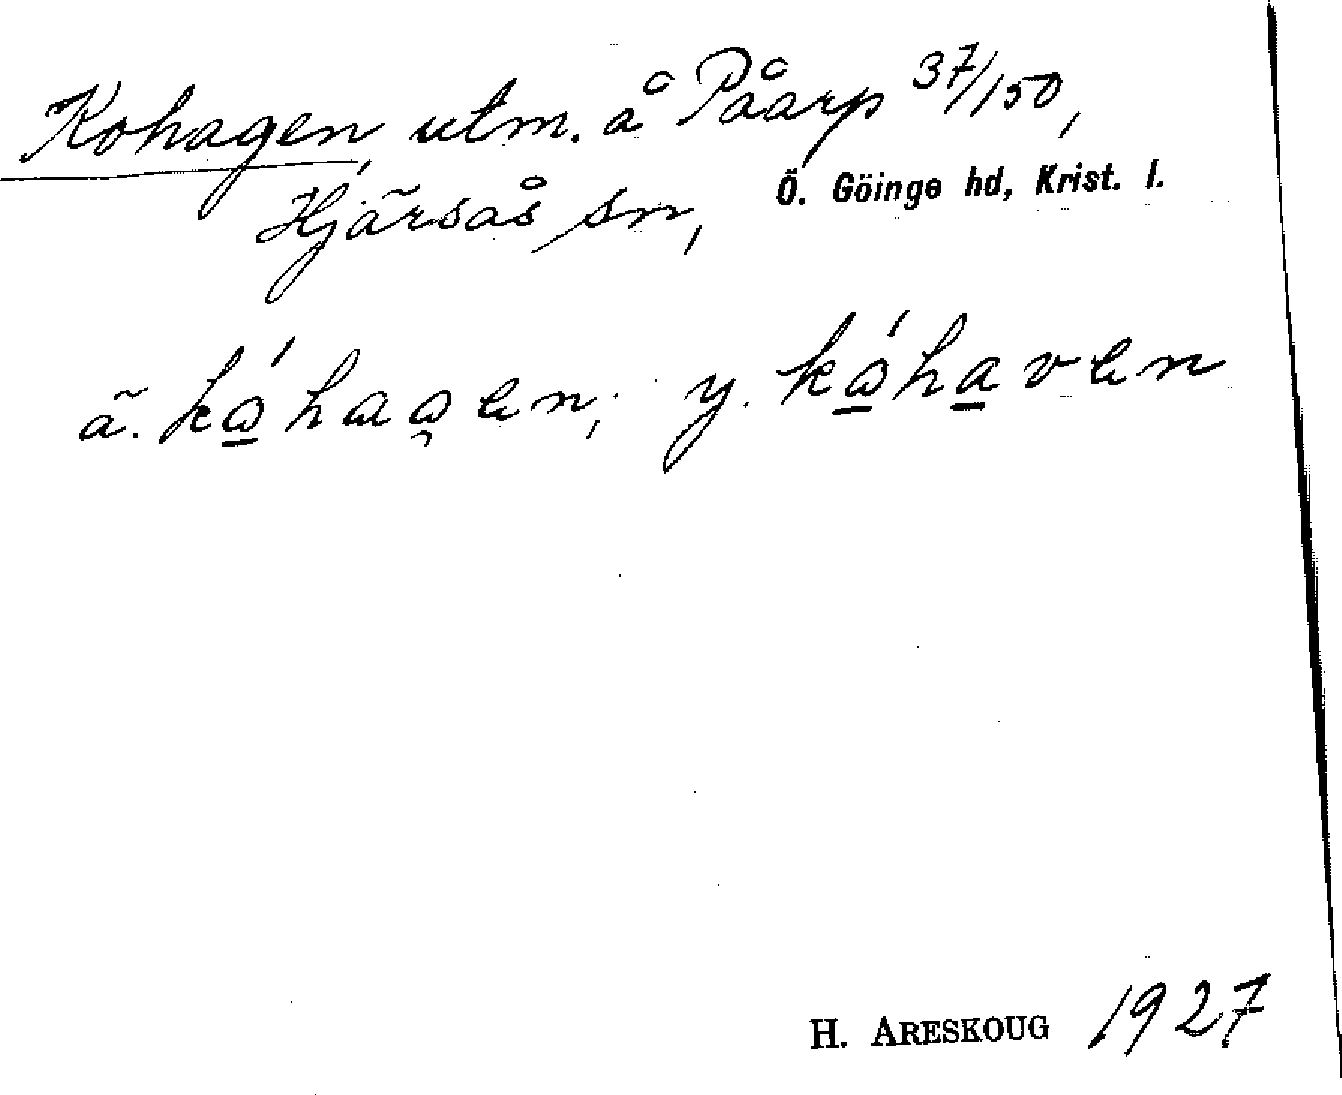 Kohagen, utm. å Påarp 37/150,
Hjärsås sn, Ö. Göinge hd, Krist. l.
ä. káhagen; y. káhaven
H. ARESKOUG 1927